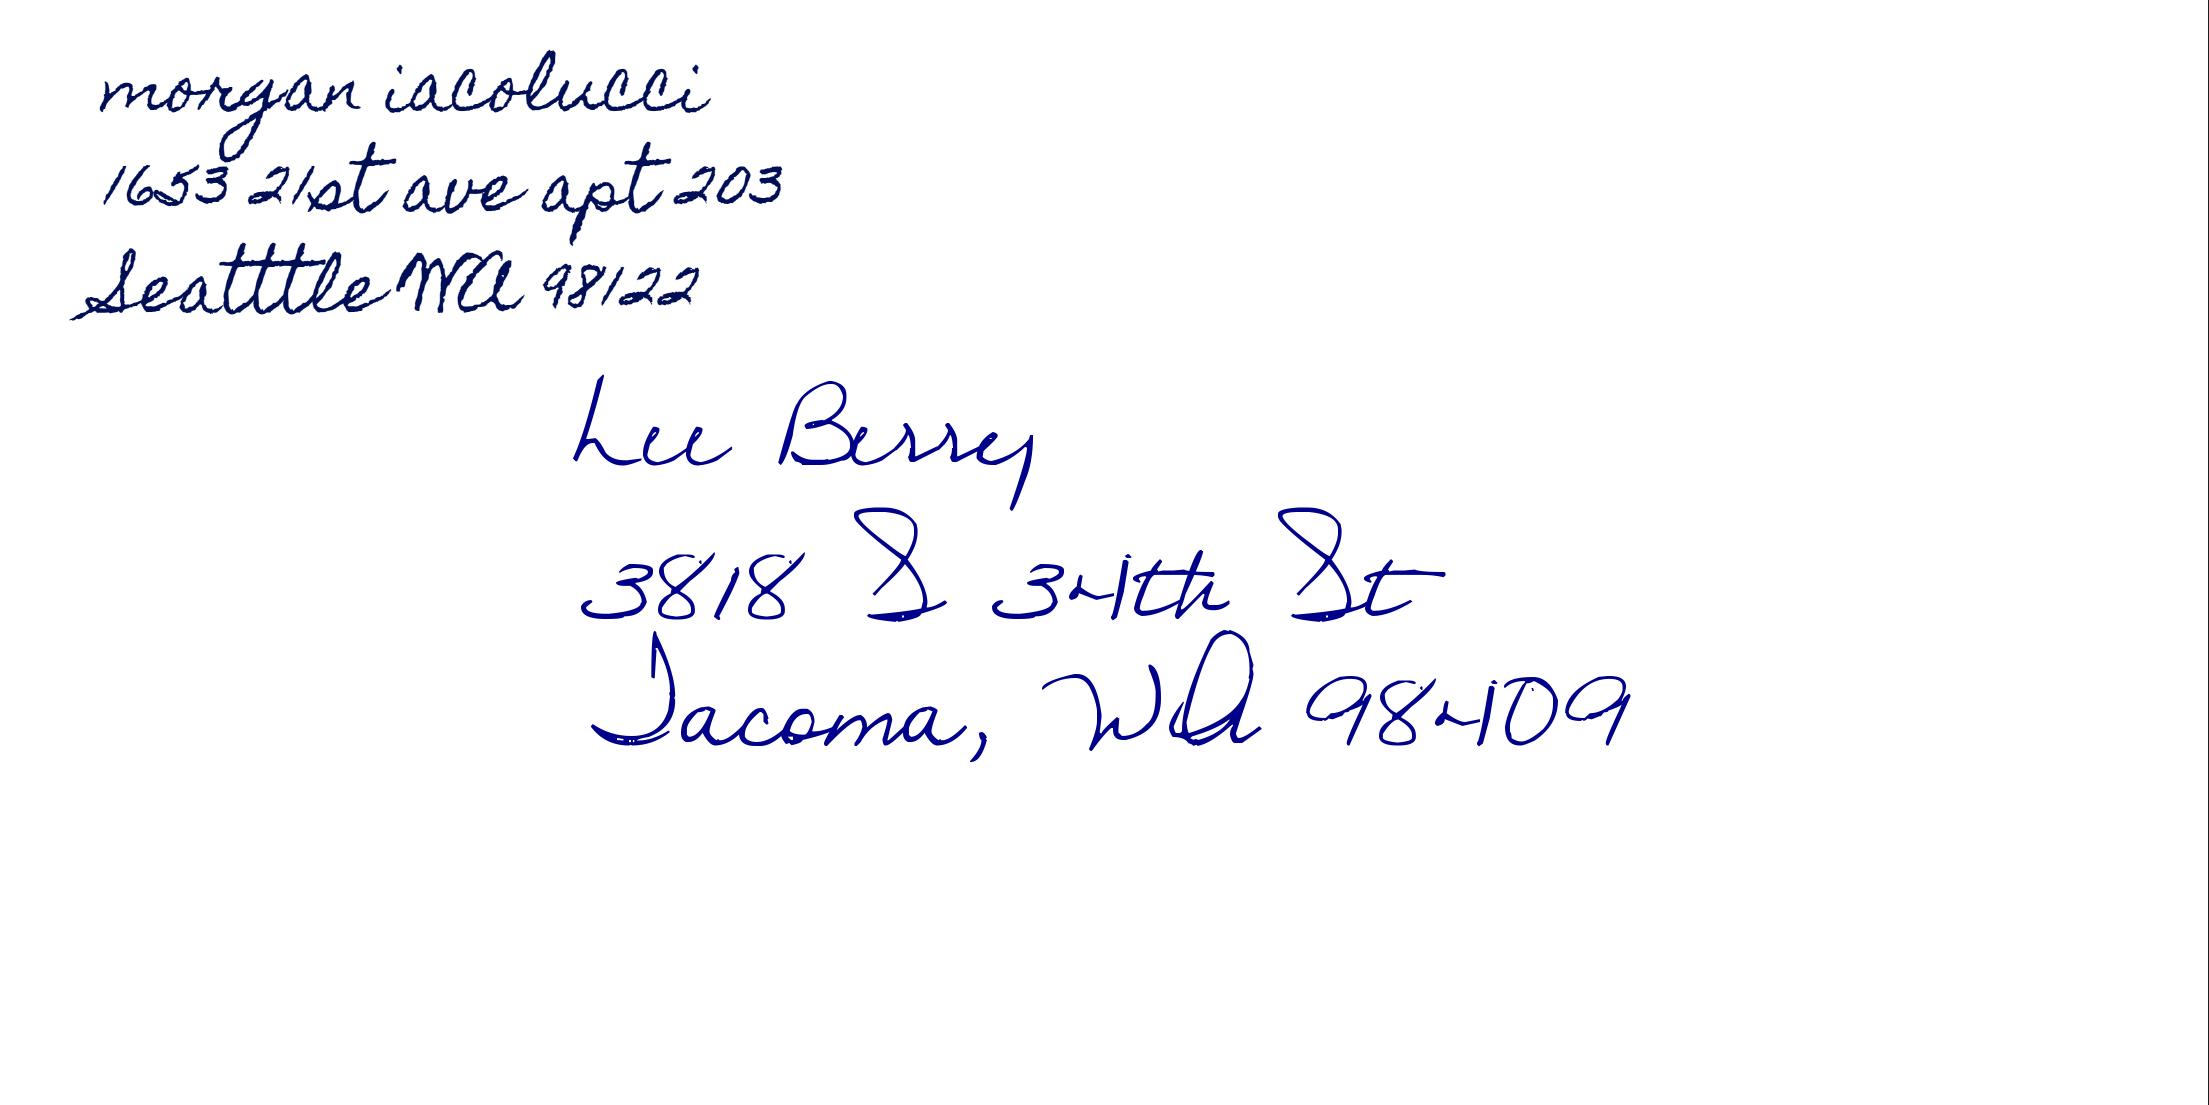 morgan iacolucci
1653 21st ave apt 203
Seatttle WA 98122
Lee Berry
3818 S 34th St
Tacoma, WA 98409